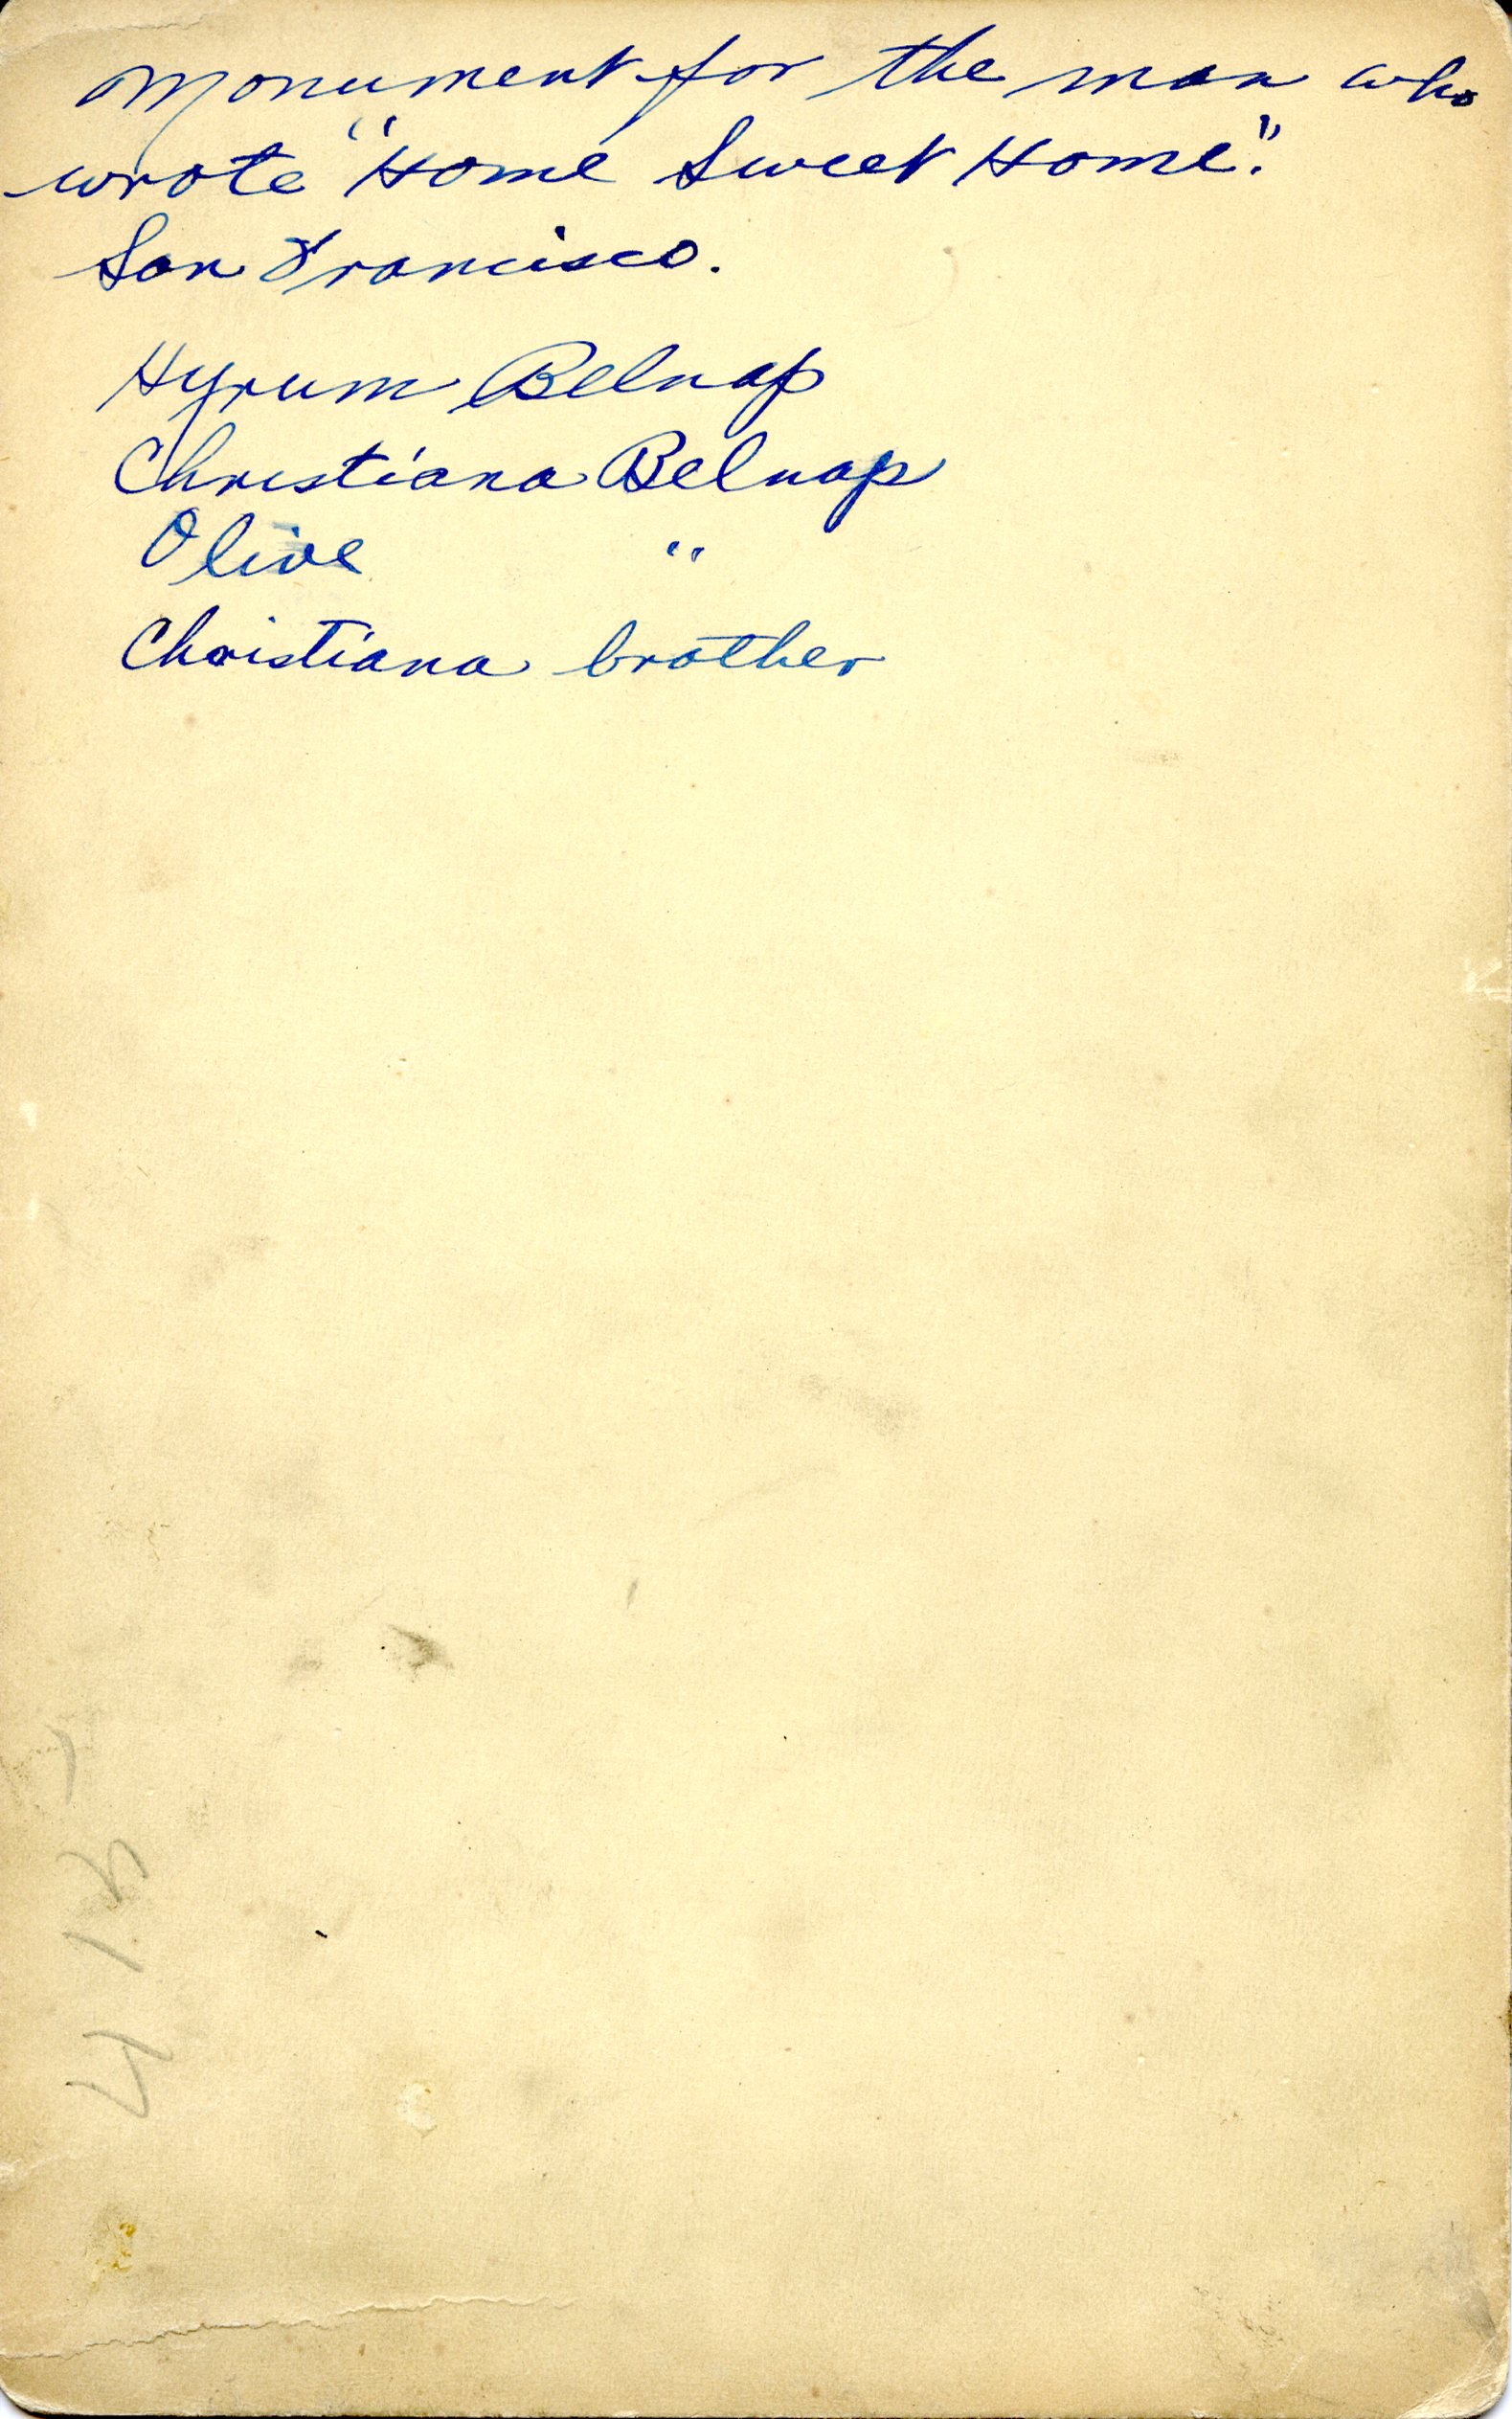 Monument for the man who
wrote "Home Sweet Home".
San Francisco.
Hyrum Belnap
Christiana Belnap
Olive "
Christiana brother